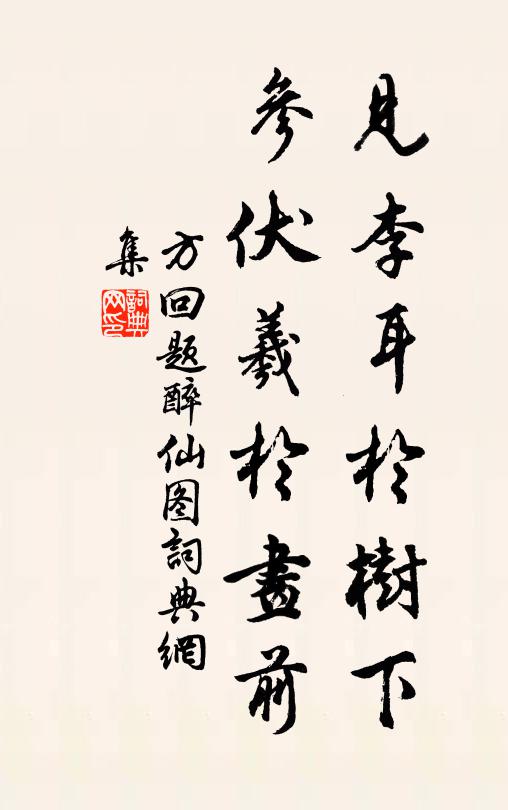 見李耳於樹下
參伏羲於畫前
方回題醉仙图詞典網
集
詞典
网印